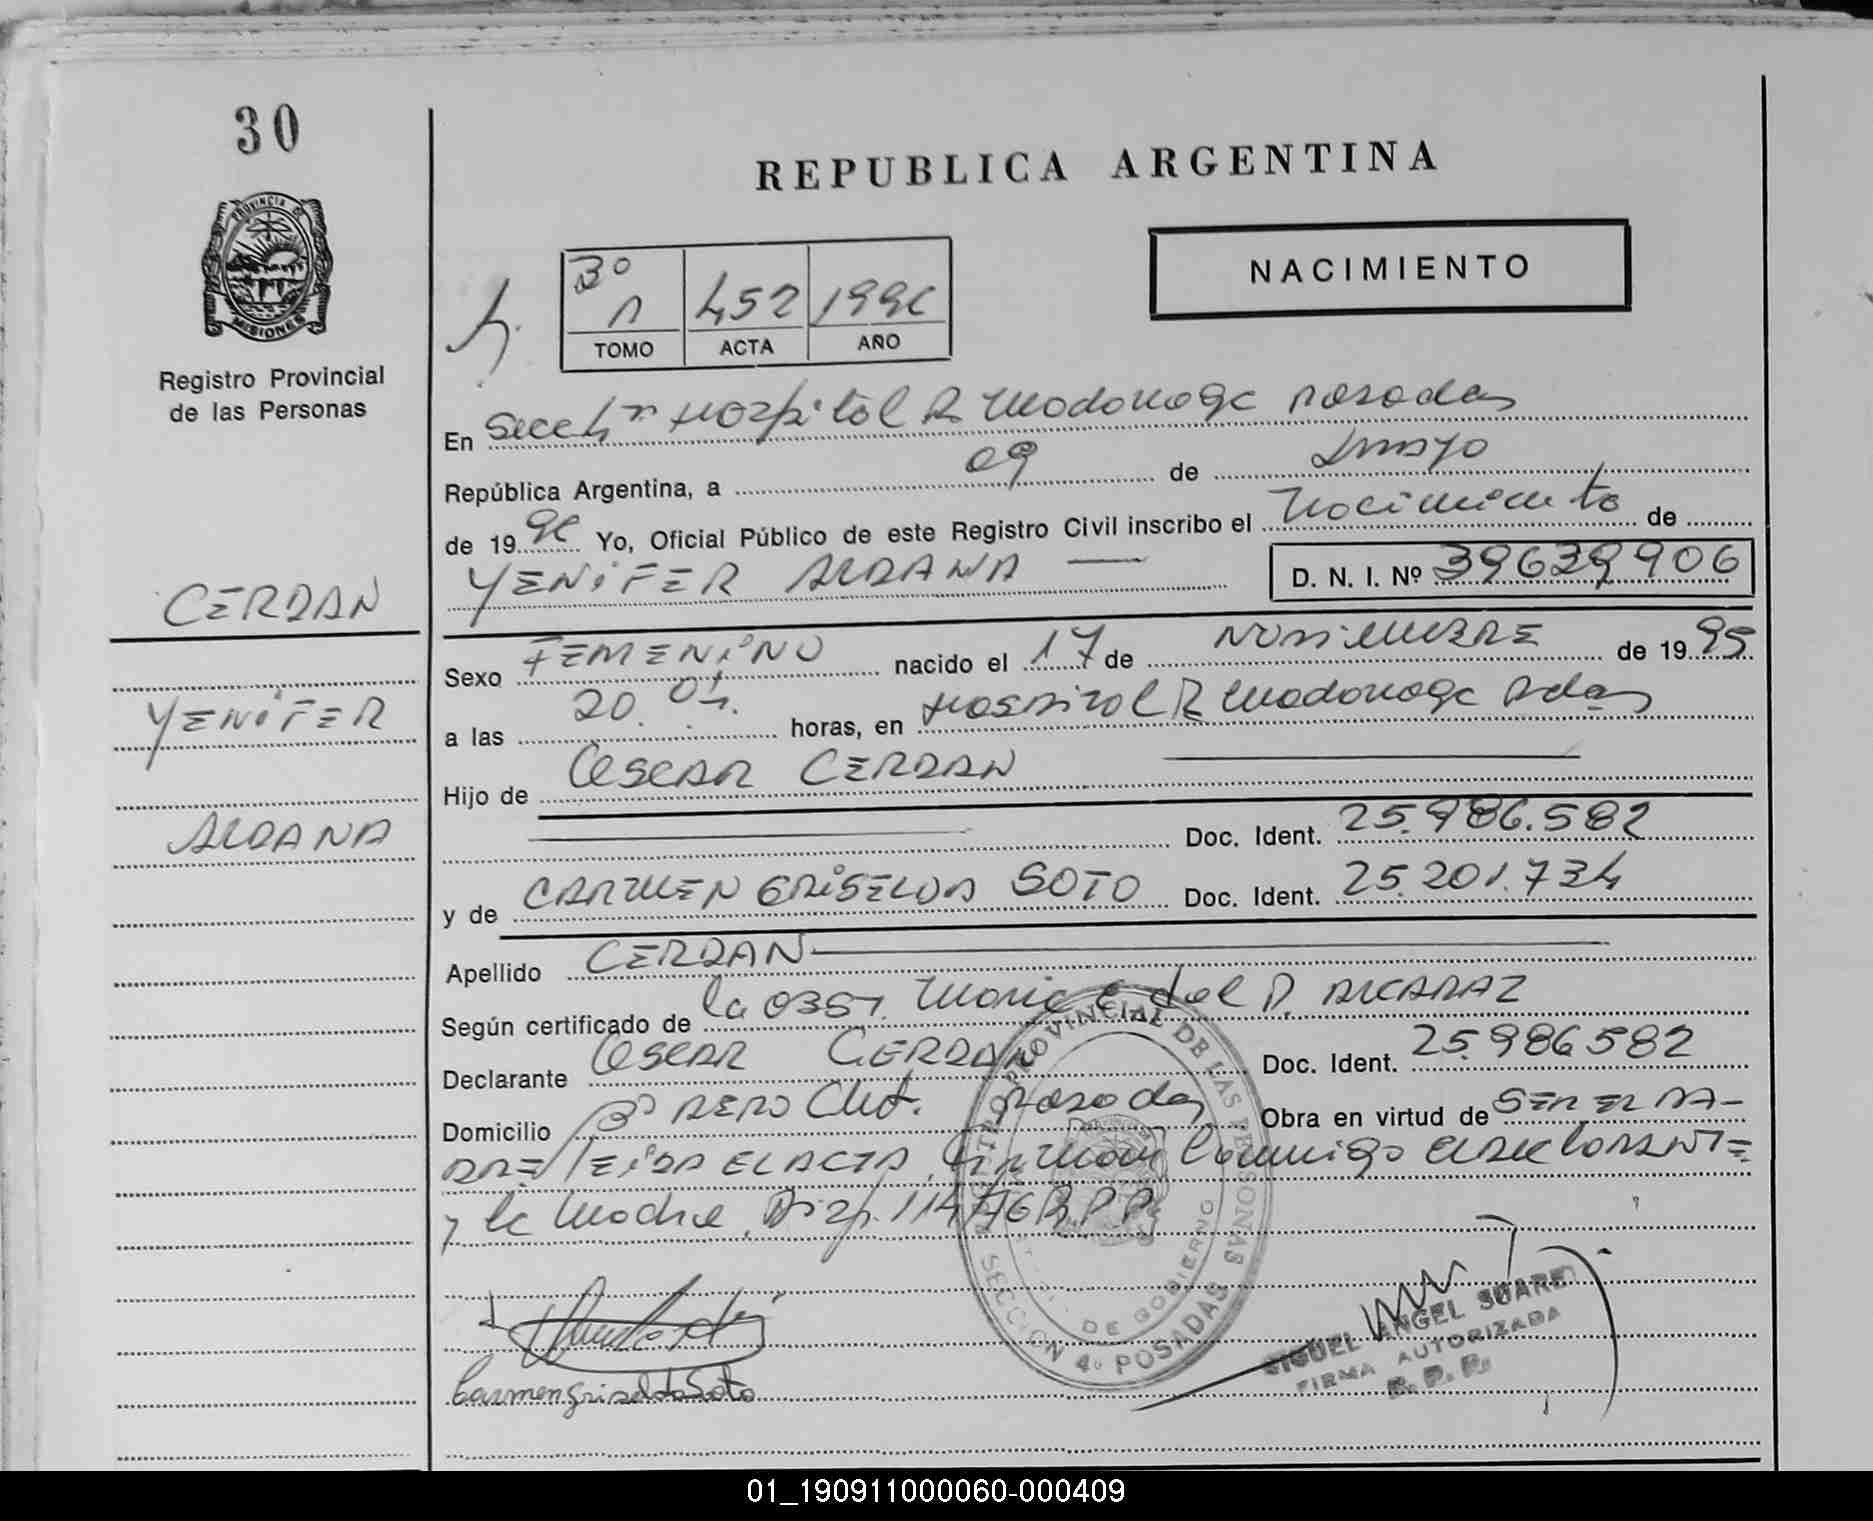 30
REPUBLICA ARGENTINA
PROVINCIA DE
MISIONES
Registro Provincial
de las Personas
3º
A 452 1996
TOMO ACTA AÑO
NACIMIENTO
En Secc 4ta Hospital R Madariaga Posadas
República Argentina, a 09 de mayo
de 1996 Yo, Oficial Público de este Registro Civil inscribo el Nacimiento de
YENiFER ALDANA
D. N. I. Nº 39639906
CERDAN
YENiFER
ALDANA
Sexo FEMENiNO nacido el 17 de NOViEMBRE de 1995
a las 20.04. horas, en Hospital R Madariaga Pdas
Hijo de OSCAR CERDAN
Doc. Ident. 25.986.582
y de CARMEN GRiSELDA SOTO Doc. Ident. 25.201.734
Apellido CERDAN
Según certificado de la OBST. Maria E del P. ALCARAZ
Declarante OSCAR CERDAN Doc. Ident. 25986582
Domicilio Bº AERO Club. Posadas Obra en virtud de SER EL PA-
DRE LEiDA EL ACTA, firman Conmigo el declarante
y la Madre, Disp. 114/76 R.P.P.
REGISTRO PROVINCIAL DE LAS PERSONAS
DE GOBIERNO
SECCION 4º POSADAS
Carmen Griselda Soto
MIGUEL ANGEL SUAREZ
FIRMA AUTORIZADA
R. P. P.
01_190911000060-000409